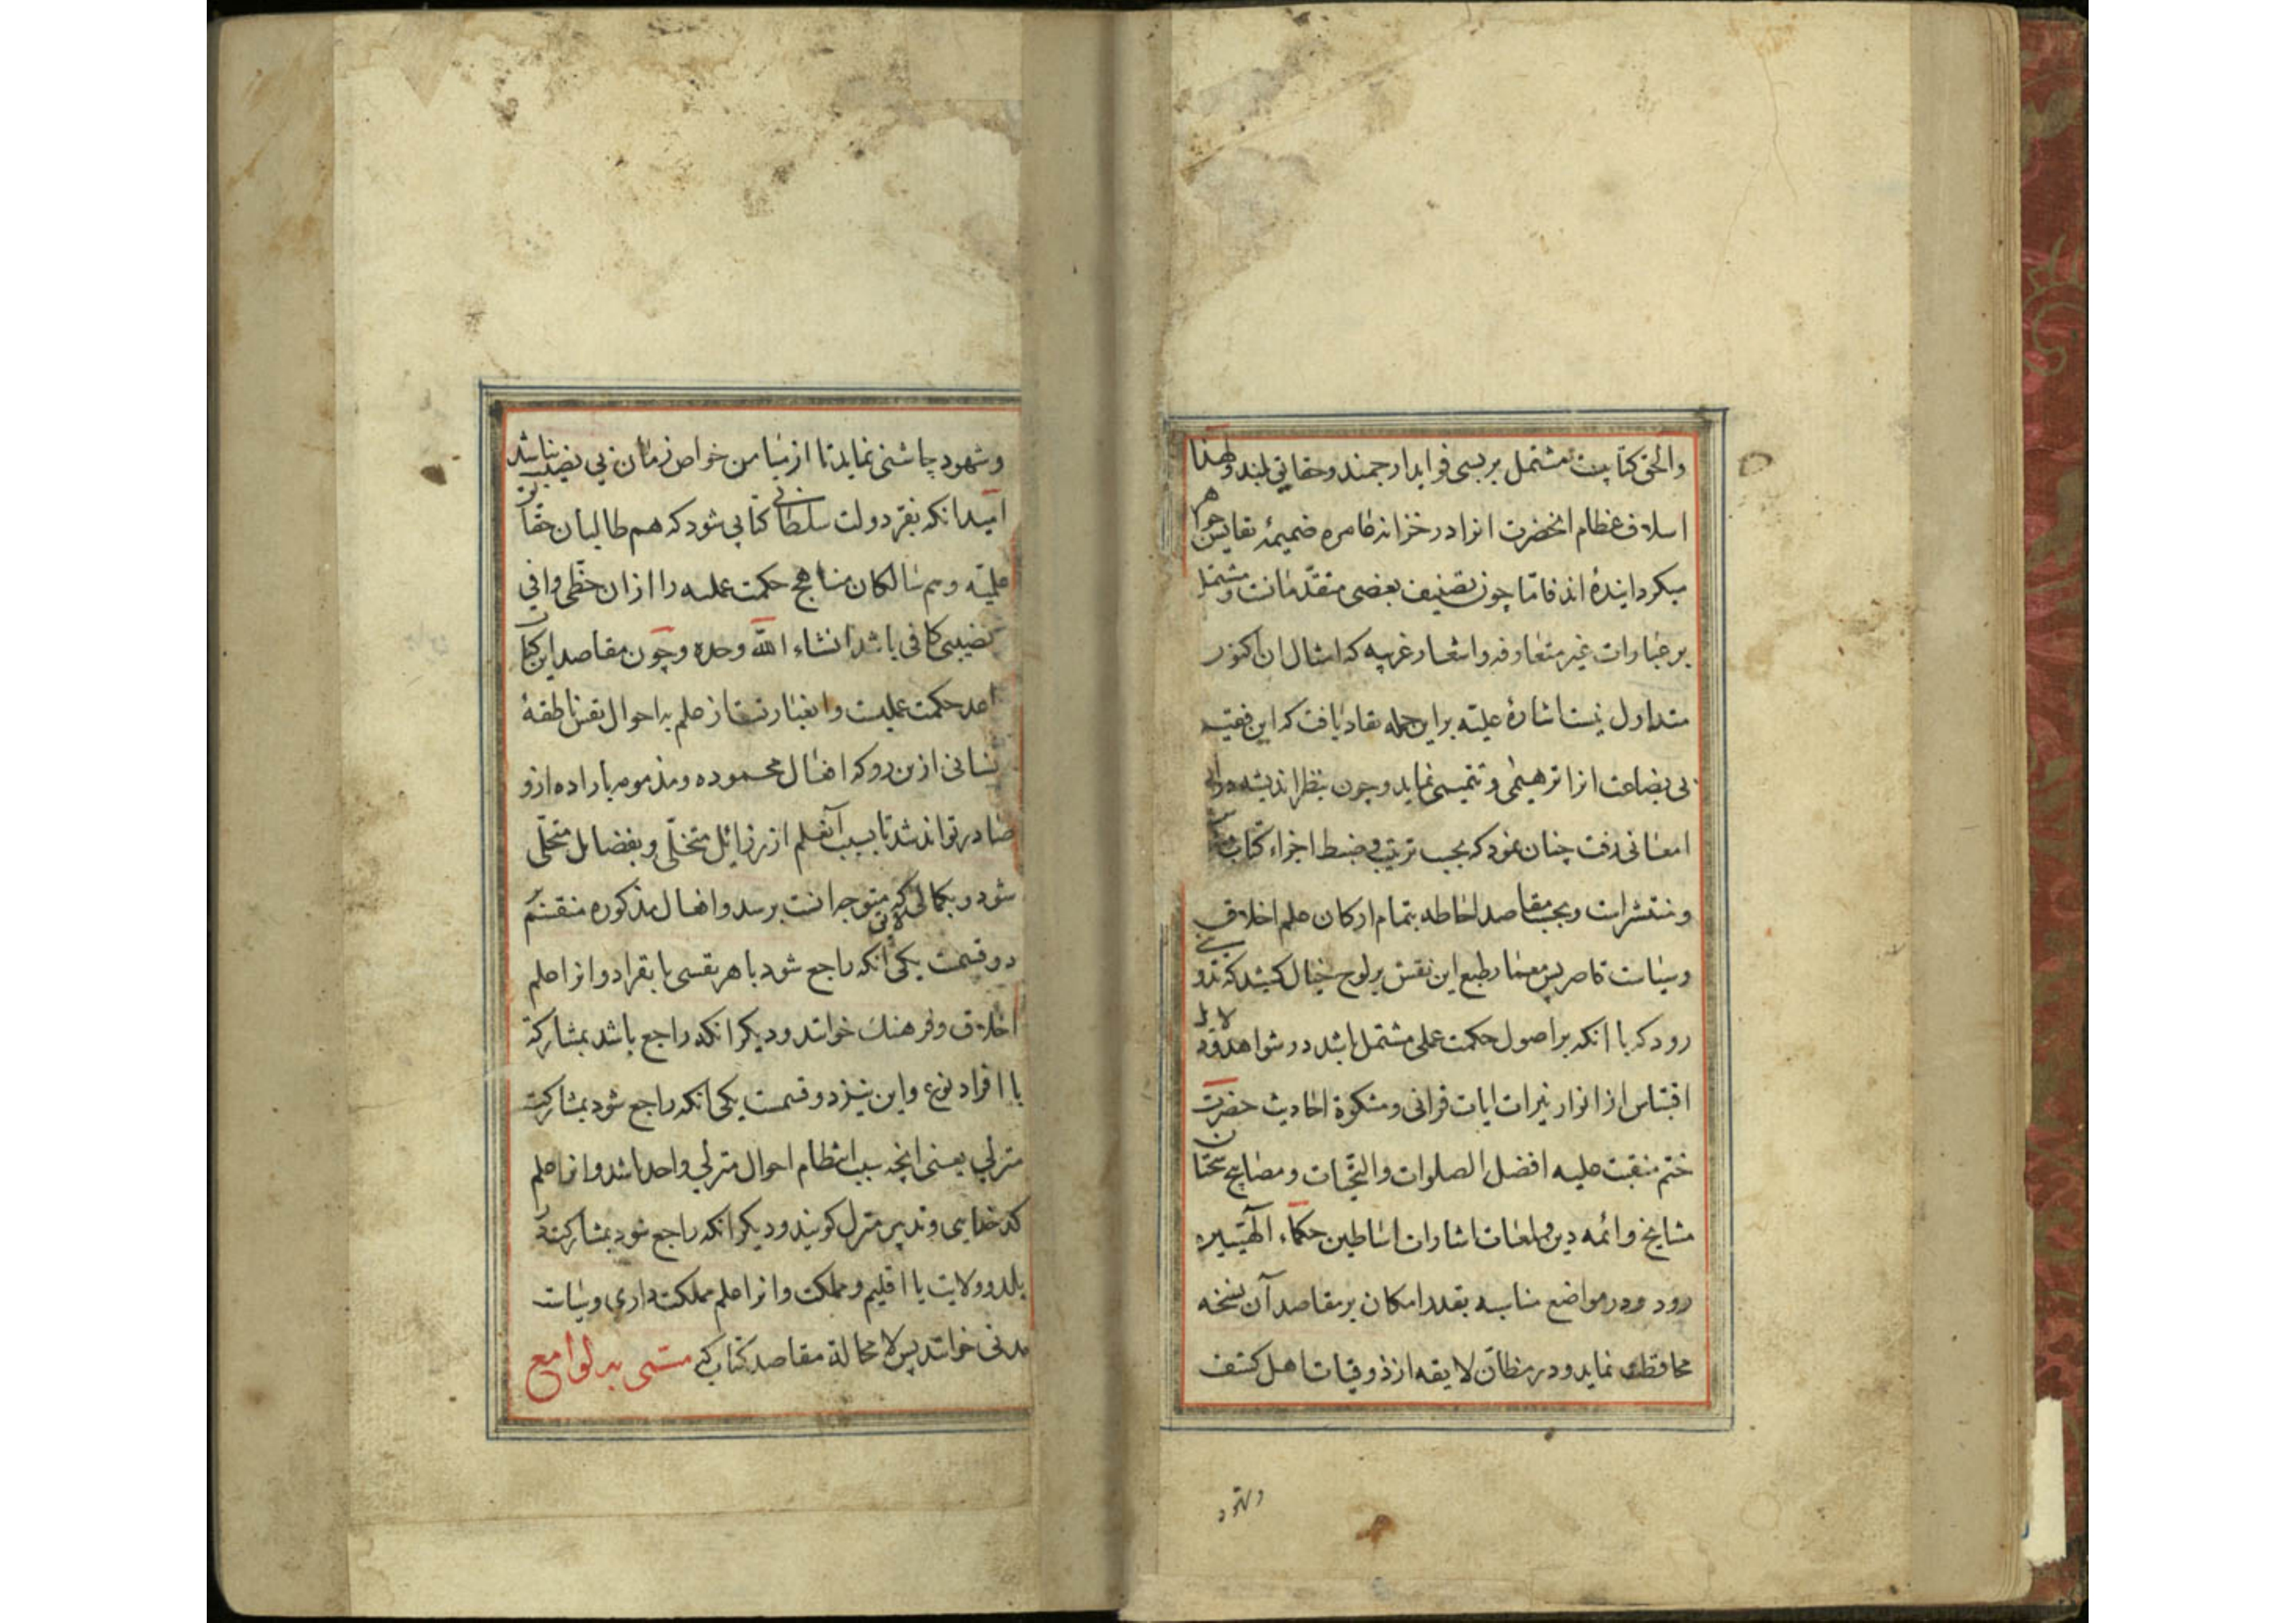 والحق کتابیست مشتمل بر بسی فواید ارجمند و حقایق بلند و لهذا
اسلاف عظام انحضرت انرا در خزانه عامره ضمیمهٔ نفایس جواهر
میکردانیدهٔ اند فامّا چون تصنیف بعضی متقدّمانست و مشتمل
بر عبارات غیر متعارفه و اشعار غریبه که امثال ان اکنون
متداول نیست اشارهٔ علیّه بر این جمله نفاد یافت که این فقیر
بی بضاعت انرا ترمیمی و تتمیمی نماید و چون بنظر اندیشه در ان
امعانی رفت چنان نمود که بحسب ترتیب و ضبط اجزاء کتاب
و منتشرست و بحسب مقاصد احاطه بتمام ارکان علم اخلاق
و سیاست قاصر پس معمار طبع این نقش بر لوح خیال کشید که تدوینی
رود که با انکه بر اصول حکمت عملی مشتمل باشد در شواهد و دلایل
اقتباس از انوار نیرات ایات قرانی و مشکوة احادیث حضرت
ختم منقبت علیه افضل الصلوات والتحیّات و مصابیح سخنان
مشایخ و ائمه دین و لمعات اشارات اساطین حکماء الٓهیّین
رود و در مواضع مناسبه بقدر امکان بر مقاصد آن نسخه
محافظت نماید و در مظانّ لایقه از ذوقیات اهل کشف
و شهود
و شهود چاشنی نماید تا از میامن خواص زمان بی نصیب نباشد
امید انکه بفرّ دولت سلطانی کتابی شود که هم طالبان حقایق
علمیّه و هم سالکان مناهج حکمت عملیه را از ان حظّی وافی
نصیبی کافی باشد انشاء الله وحده و چون مقاصد این کتاب
احد حکمت عملیست و ان عبارتست از علم به احوال نفس ناطقهٔ
نسانی از ین رو که افعال محموده و مذمومه باراده ازو
صادر تواند شد تا بسبب آنعلم از رزائل متخلّی و بفضایل متحلّی
شود و بکمالی که متوجه انست برسد و افعال مذکوره منقسم
دو قسمت یکی انکه راجع شود با هر نفسی بانفراد و انرا علم
اخلاق و فرهنک خوانند و دیکر انکه راجع باشد بمشارکة
با افراد نوع و این نیز دو قسمت یکی انکه راجع شود بمشارکت
منزلی یعنی انچه سبب انتظام احوال منزلی واحد باشد و انرا علم
کدخدایی و تدبیر منزل کویند و دیکر انکه راجع شود بمشارکت در
بلد و ولایت یا اقلیم و مملکت و انرا علم مملکت داری و سیاست
مدنی خوانند پس لامحالة مقاصد کتاب که مسمّی بد لوامع